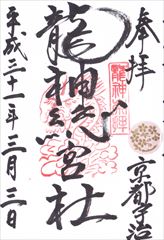 奉拝
龍神総宮社
京都宇治
平成三十一年三月三日